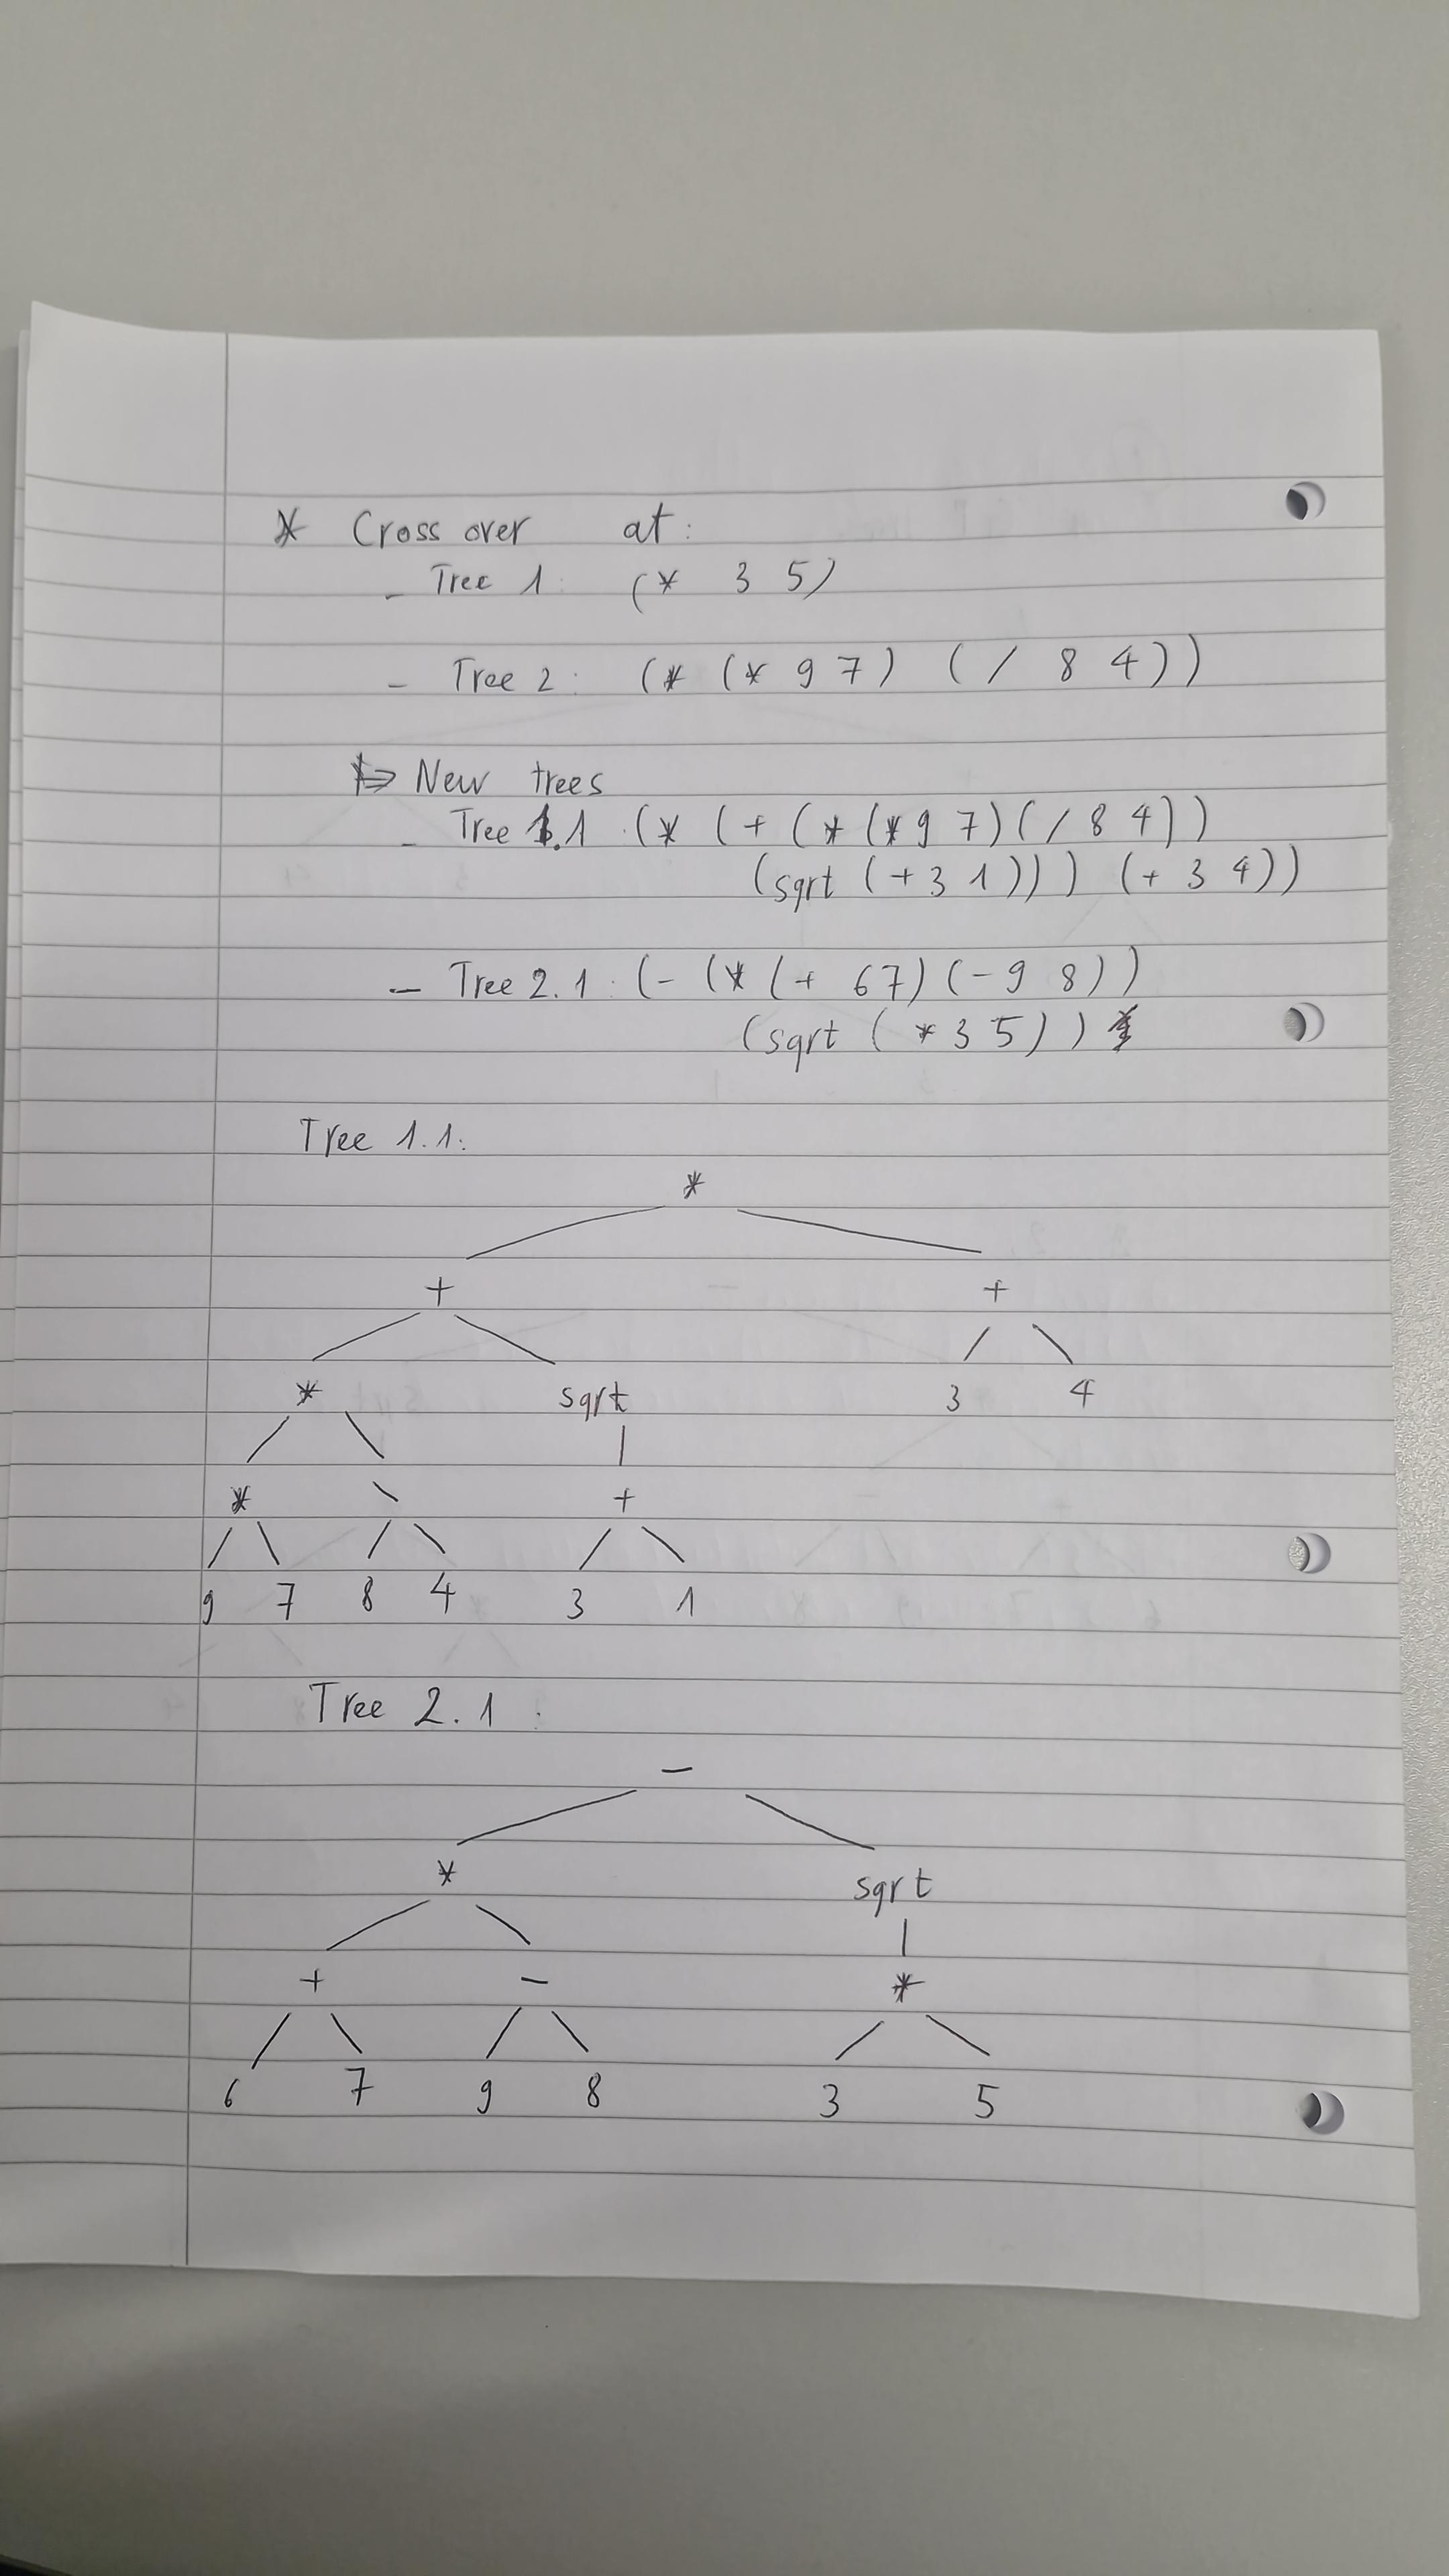 * Cross over at:
- Tree 1: (* 3 5)
- Tree 2: (* (* 9 7) ( / 8 4))
=> New trees
- Tree 1.1 (* (+ (* (* 9 7) ( / 8 4))
(sqrt (+ 3 1))) (+ 3 4))
- Tree 2.1: (- (* (+ 6 7) (- 9 8))
(sqrt ( * 3 5) )
Tree 1.1:
*
+ +
* sqrt 3 4
* \ +
9 7 8 4 3 1
Tree 2.1 :
-
* sqrt
+ - *
6 7 9 8 3 5